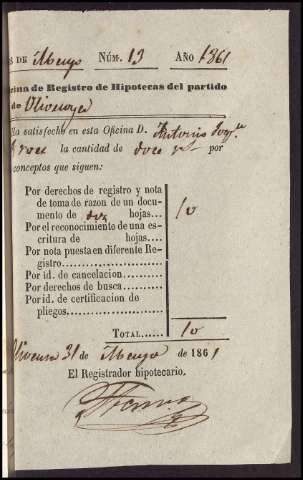 S DE Mayo NÚM. 13 AÑO 1861
cina de Registro de Hipotecas del partido
de
Ha satisfecho en esta Oficina D. Antonio
la cantidad de doce por
conceptos que siguen:
Por derechos de registro y nota
de toma de razon de un docu-
mento de dos hojas... 10
Por el reconocimiento de una es-
critura de hojas....
Por nota puesta en diferente Re-
gistro
Por id. de cancelacion
Por derechos de busca
Por id. de certificacion de
pliegos
TOTAL...... 10
31 de Mayo de 1861
El Registrador hipotecario.